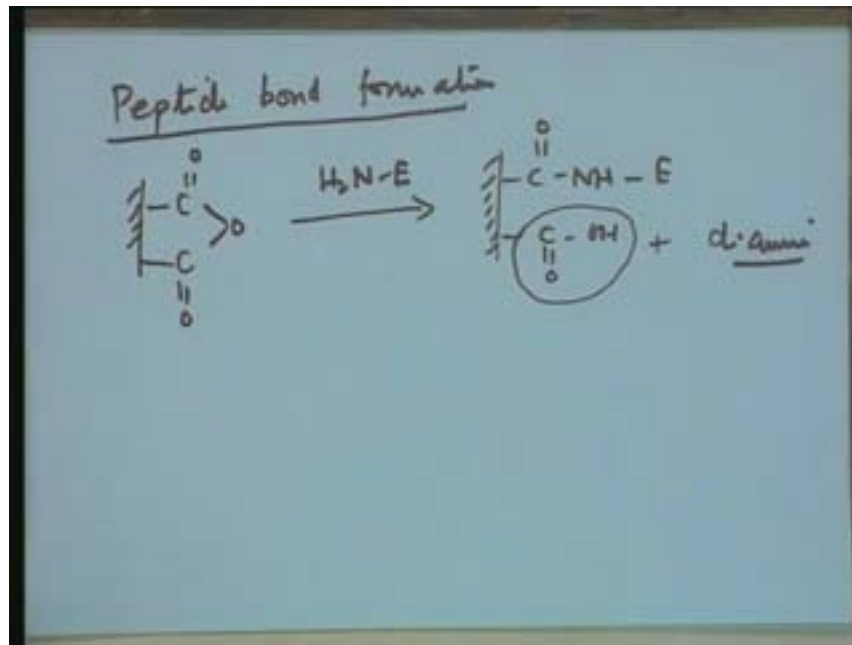 Peptide bond formation
O O
|| ||
-C H₂N-E -C-NH-E
>O ⟶
-C -C-OH + diamine
|| ||
O O